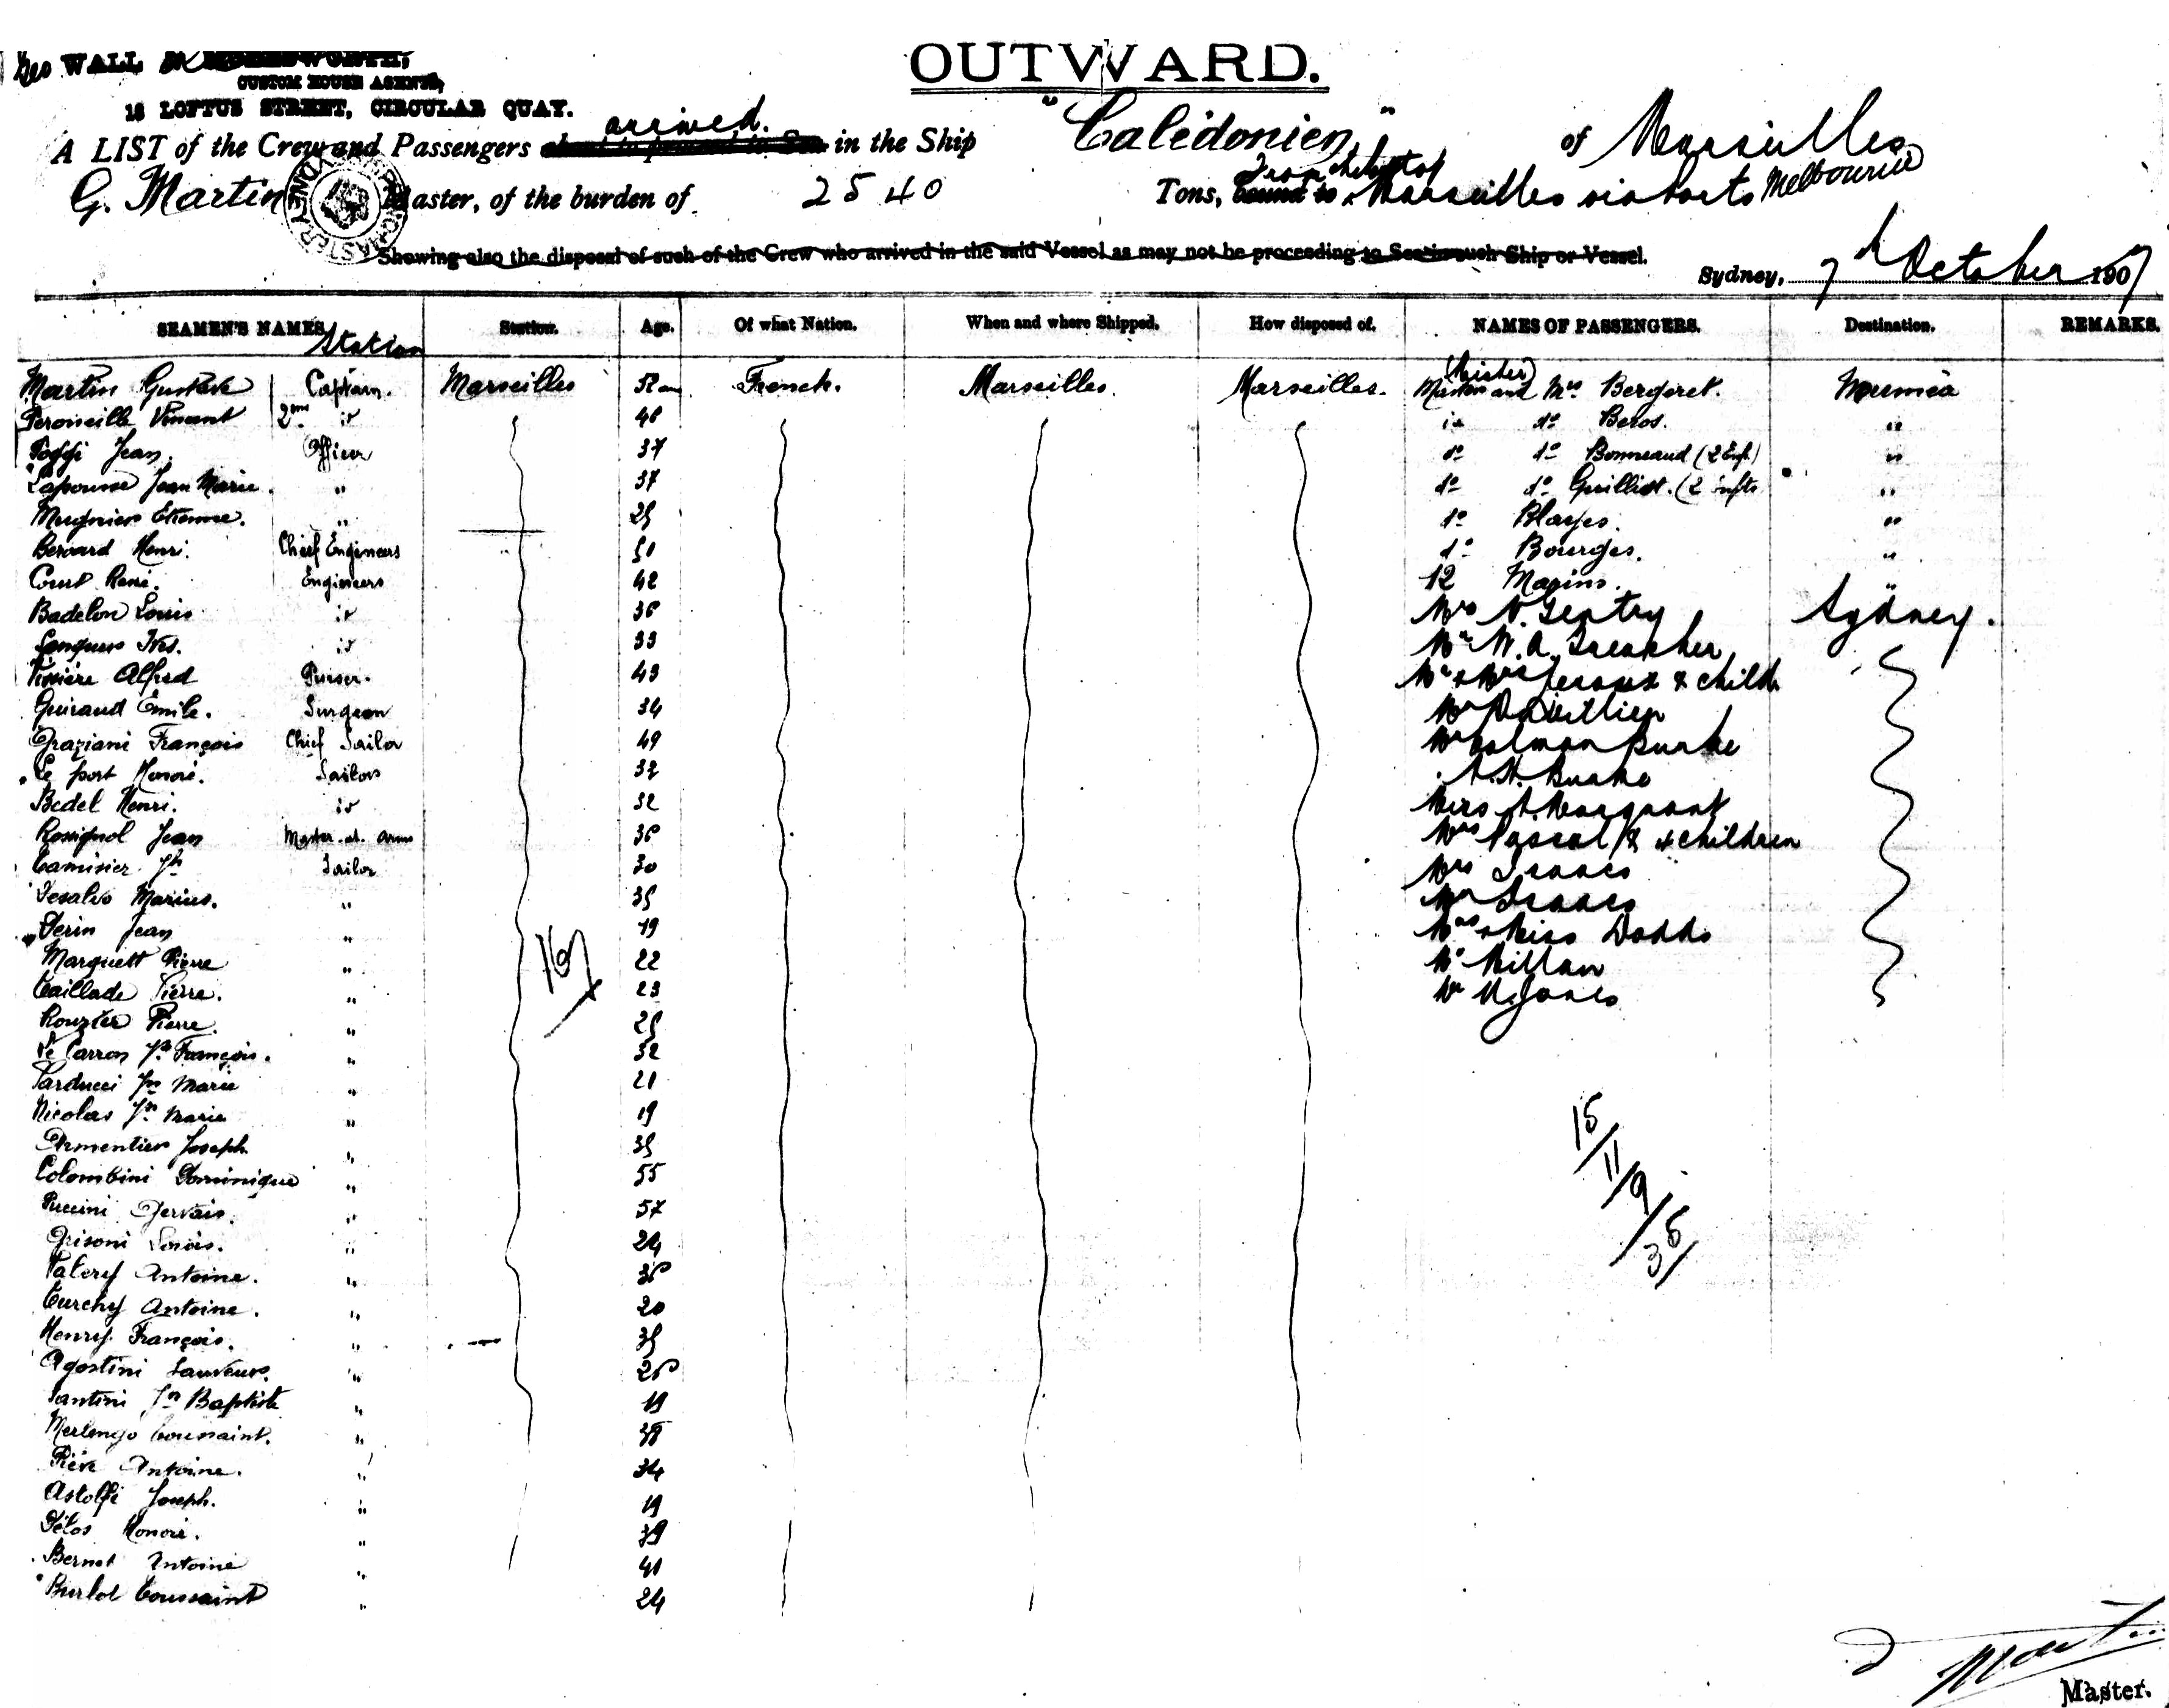 OUTWARD.
Geo WALL
CUSTOM HOUSE AGENTS,
16 LOFTUS STREET, CIRCULAR QUAY.
arrived.
A LIST of the Crew and Passengers about to proceed to Sea in the Ship "Calédonien" of Marseilles
G. Martin Master, of the burden of 2540 Tons, bound to from Marseilles via ports Melbourne
Showing also the disposal of such of the Crew who arrived in the said Vessel as may not be proceeding to Sea in such Ship or Vessel.
Sydney, 7th October 1907
SEAMEN'S NAMES Station Station. Age. Of what Nation. When and where Shipped. How disposed of. NAMES OF PASSENGERS. Destination. REMARKS.
Martin Gustave Captain. Marseilles 52 French. Marseilles. Marseilles. (Mister) and Mrs Bergeret. Noumea
Peroneille Vincent 2me id 48 id do Beros. "
Poggi Jean. Officer 37 do do Bonneaud (2 Enf.) "
Lapousse Jean Marie. " 37 do do Guilliot. (2 Infts "
Mugnier Etienne. " 25 do Blayes. "
Berard Henri. Chief Engineers 50 do Bourges. "
Court René. Engineers 42 12 Marins.
Badelon Louis id 36 Mrs N. Gentry Sydney.
Yves. id 33 Mr W. A. Treacher
Vissière Alfred Purser. 43 Mr & Mrs & child
Guiraud Emile. Surgeon 34 Mr
Graziani François Chief Sailor 49 Mr Burke
Le port Honoré. Sailors 32
Bedel Henri. id 32 Miss A. Marquant
Rossignol Jean Master-at-arms 36 Mrs & 4 children
Camisier Jh Sailor 30 Mrs Isaacs
Marius. " 35 Mr Isaacs
Jean " 19 Mrs & Miss Dodds
Marquett Pierre " 22 Mr Millan
Caillade Pierre. " 23 Mr Jones
Pierre. " 25
Le Carron Jh François. " 32
Parducci Jn Marie " 21
Nicolas Jn Marie " 19
Armentier Joseph. " 35
Colombini Dominique " 55
Puccini Gervais. " 57
Grisoni Louis. " 24
Valery Antoine. " 36
Turchy Antoine. " 20
Henry François. " 35
Agostini Sauveur. " 26
Santini Jn Baptiste " 19
Toussaint. " 38
Piève Antoine. " 34
Astolfi Joseph. " 19
Honoré. " 39
Bernot Antoine " 41
Burlot Toussaint " 24
15/11/9/35
Master.